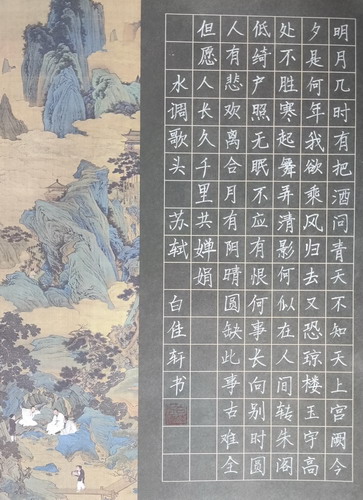 明月几时有把酒问青天不知天上宫阙今
夕是何年我欲乘风归去又恐琼楼玉宇高
处不胜寒起舞弄清影何似在人间转朱阁
低绮户照无眠不应有恨何事长向别时圆
人有悲欢离合月有阴晴圆缺此事古难全
但愿人长久千里共婵娟
水调歌头 苏轼 白佳轩书